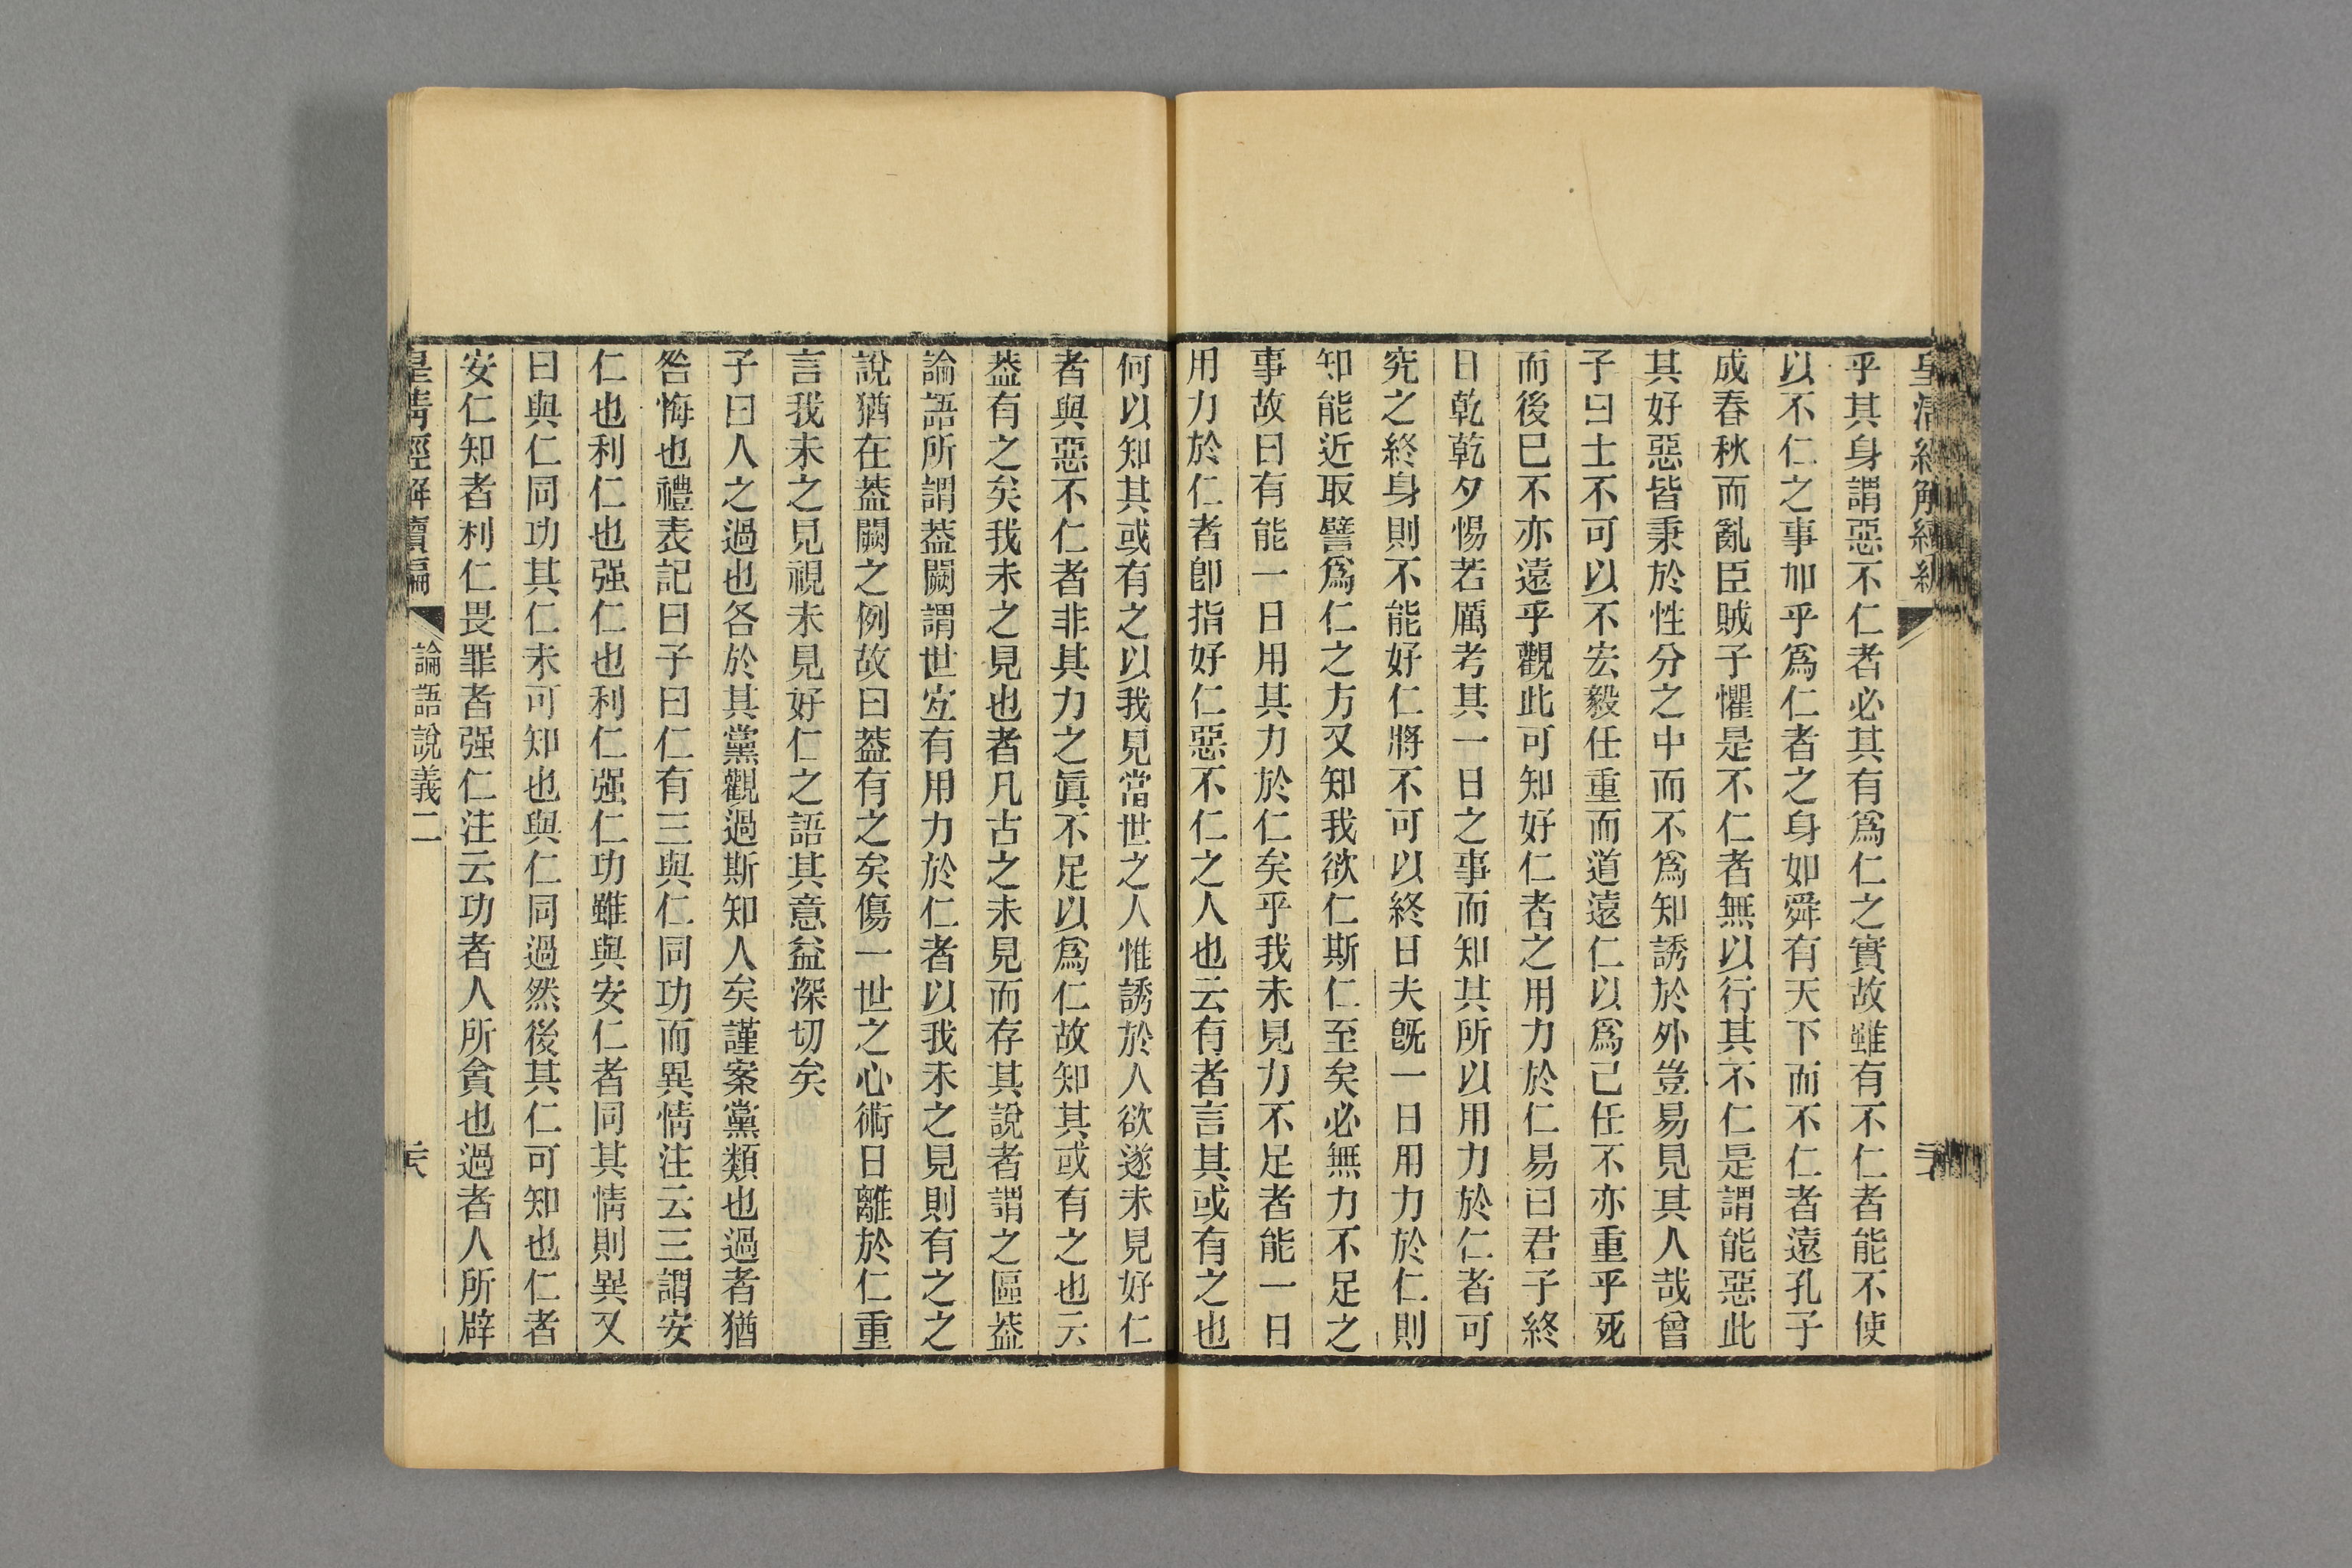 皇清經解續編
乎其身謂惡不仁者必其有爲仁之實故雖有不仁者能不使
以不仁之事加乎爲仁者之身如舜有天下而不仁者遠孔子
成春秋而亂臣賊子懼是不仁者無以行其不仁是謂能惡此
其好惡皆秉於性分之中而不爲知誘於外豈易見其人哉曾
子曰士不可以不宏毅任重而道遠仁以爲己任不亦重乎死
而後已不亦遠乎觀此可知好仁者之用力於仁易曰君子終
日乾乾夕惕若厲考其一日之事而知其所以用力於仁者可
究之終身則不能好仁將不可以終日夫旣一日用力於仁則
知能近取譬爲仁之方又知我欲仁斯仁至矣必無力不足之
事故曰有能一日用其力於仁矣乎我未見力不足者能一日
用力於仁者卽指好仁惡不仁之人也云有者言其或有之也
何以知其或有之以我見當世之人惟誘於人欲遂未見好仁
者與惡不仁者非其力之眞不足以爲仁故知其或有之也云
葢有之矣我未之見也者凡古之未見而存其說者謂之區葢
論語所謂葢闕謂世宐有用力於仁者以我未之見則有之之
說猶在葢闕之例故曰葢有之矣傷一世之心術日離於仁重
言我未之見視未見好仁之語其意益深切矣
子曰人之過也各於其黨觀過斯知人矣謹案黨類也過者猶
咎悔也禮表記曰子曰仁有三與仁同功而異情注云三謂安
仁也利仁也强仁也利仁强仁功雖與安仁者同其情則異又
曰與仁同功其仁未可知也與仁同過然後其仁可知也仁者
安仁知者利仁畏罪者强仁注云功者人所貪也過者人所辟
皇清經解續編 論語說義二